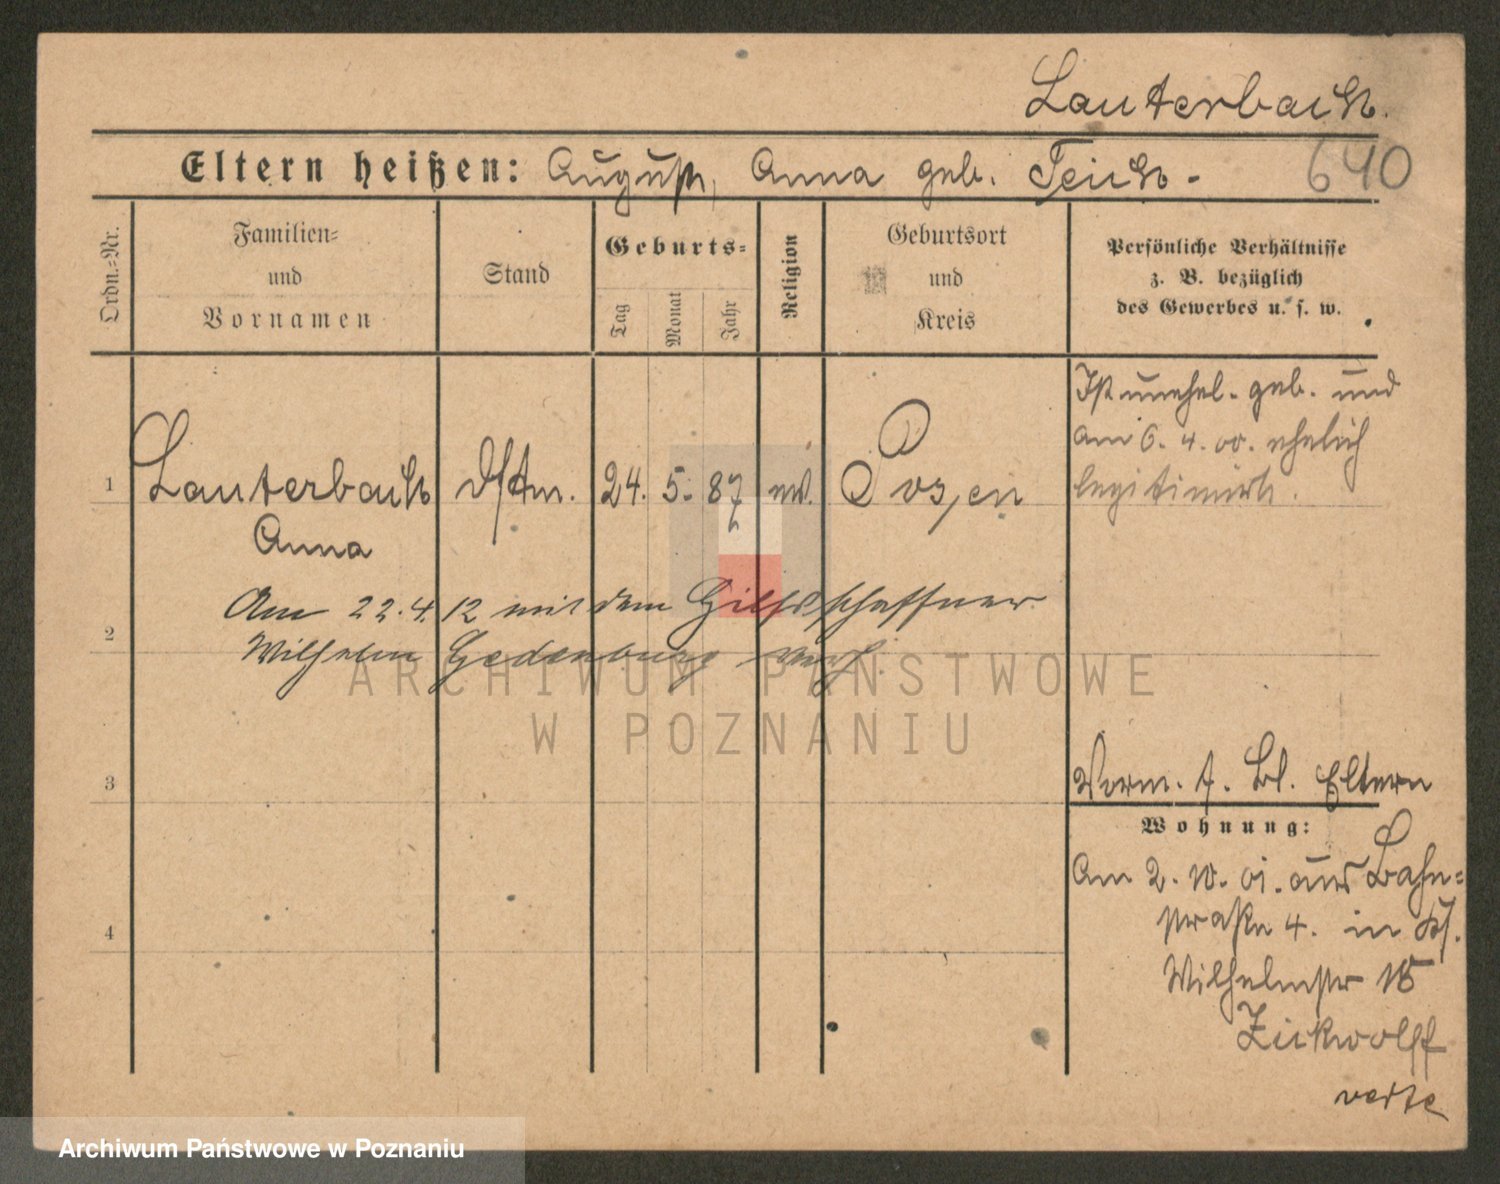 Lauterbach.
Eltern heißen: August, Anna geb. Teich -
640
Ordn.=Nr.
Familien=
und
Vornamen
Stand
Geburts=
Tag
Monat
Jahr
Religion
Geburtsort
und
Kreis
Persönliche Verhältnisse
z. B. bezüglich
des Gewerbes u. s. w.
Ist unehel. geb. und
am 6. 4. 00. ehelich
legitimirt.
1 Lauterbach Dstm. 24. 5. 87 ev. Posen
Anna
Am 22.4.12 mit dem Hilfsschaffner
2
Wilhelm Hedenburg verh.
3
Vorm. f. Bl. Eltern
Wohnung:
Am 2. 10. 01. aus Bahn=
straße 4. in
4
Wilhelmstr 15
Zickwolff
verte
ARCHIWUM PAŃSTWOWE
W POZNANIU
Archiwum Państwowe w Poznaniu